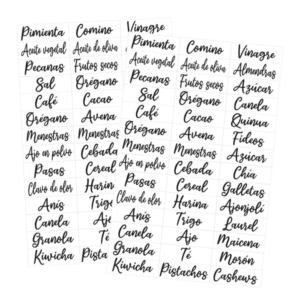 Pimienta
Aceite vegetal
Pecanas
Sal
Café
Orégano
Menestras
Ajo en polvo
Pasas
Clavo de olor
Anís
Canela
Granola
Kiwicha
Comino
Aceite de oliva
Frutos secos
Orégano
Cacao
Avena
Menestras
Cebada
Cereal
Harin
Trigo
Té
Pista
Vinagre
Pimienta
Aceite vegetal
Pecanas
Sal
Café
Orégano
Menestras
Ajo en polvo
Pasas
Clavo de olor
Anís
Canela
Granola
Kiwicha
Comino
Aceite de oliva
Frutos secos
Orégano
Cacao
Avena
Menestras
Cebada
Cereal
Harina
Trigo
Ajo
Té
Pistachos
Vinagre
Almendras
Azúcar
Canela
Quinua
Fideos
Azúcar
Chia
Galletas
Ajonjolí
Laurel
Maicena
Morón
Cashews